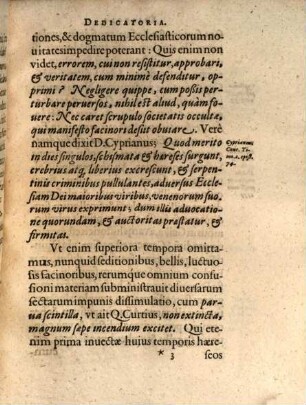 DEDICATORIA.
tiones, & dogmatum Ecclesiasticorum no-
uitates impedire poterant: Quis enim non
videt, errorem, cui non resistitur, approbari,
& veritatem, cum minimè defenditur, op-
primi? Negligere quippe, cum possis per-
turbare peruersos, nihil est aliud, quàm fo-
uere: Nec caret scrupulo societatis occultæ,
qui manifesto facinori desiit obuiare. Verè
namque dixit D. Cyprianus; Quod merito
in dies singulos, schismata & hæreses surgunt,
crebrius atq, liberius excrescunt, & serpen-
tinis criminibus pullulantes, aduersus Eccle-
siam Dei maioribus viribus, venenorum suo-
rum virus exprimunt; dum illis aduocatio-
ne quorundam, & auctoritas præstatur, &
firmitas.
Cyprianus
Vt enim superiora tempora omitta-
mus, nunquid seditionibus, bellis, luctuo-
sis facinoribus, rerumque omnium confu-
sioni materiam subministrauit diuersarum
sectarum impunis dissimulatio, cum par-
ua scintilla, vt ait Q. Curtius, non extincta,
magnum sæpe incendium excitet. Qui et-
enim prima inuectæ hujus temporis hære-
* 3 seos